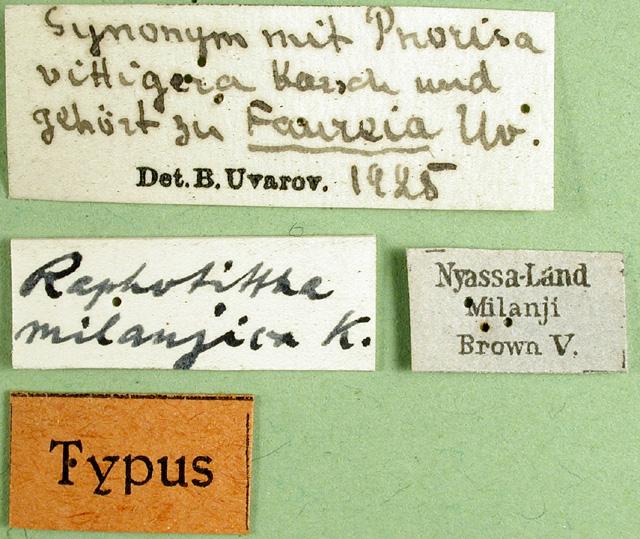 Synonym mit Pnorisa
vittigera Karsch und
gehört zu Faureia Uv.
Det. B. Uvarov. 1925
Raphotittha
milanjica K.
Nyassa-Land
Milanji
Brown V.
Typus